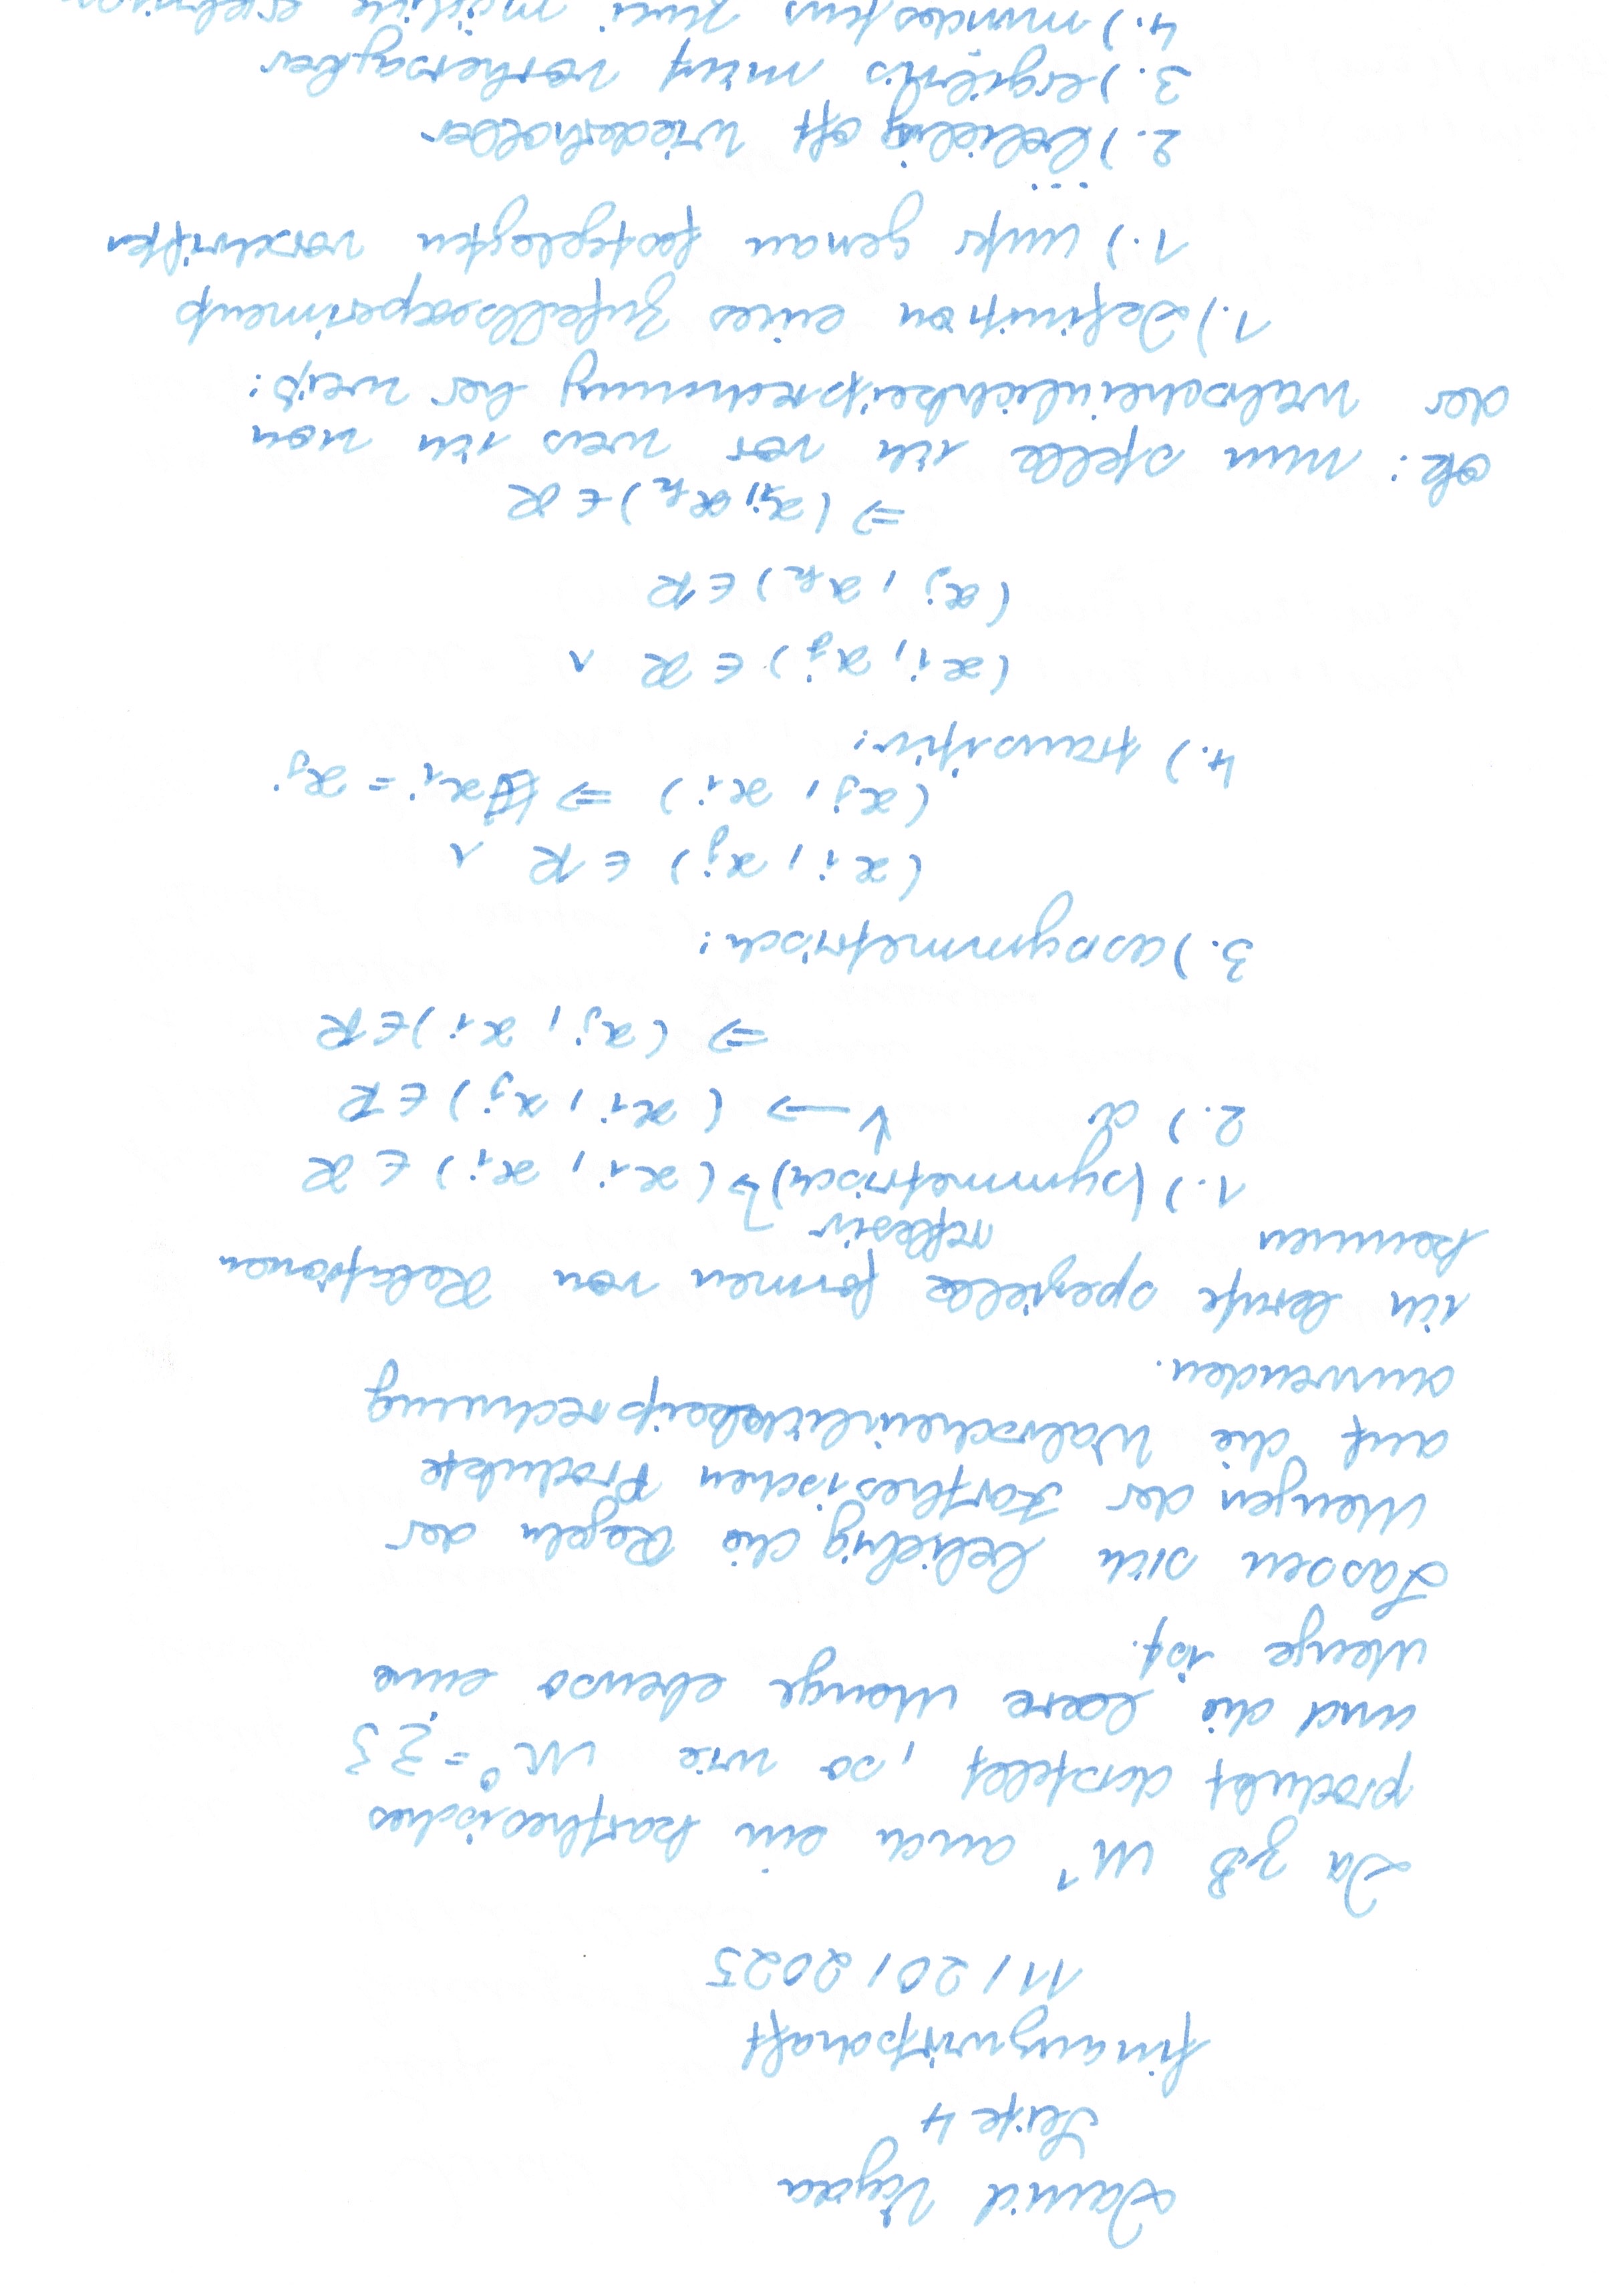 David Vajda
Seite 4
finanzwirtschaft
11/20/2025
Da zB M¹ auch ein karthesisches
produkt darstellt, so wie M⁰ = {}
und die leere Menge ebenso eine
Menge ist.
Lassen sich beliebig die Regeln der
Mengen der Karthesischen Produkte
auf die Wahrscheinlichkeitsrechnung
anwenden.
ich lernte spezielle formen von Relationen
kennen
reflexiv
1.) (symmetrisch) (xi, xi) ∈ R
2.) → (xi, xj) ∈ R
⇒ (xj, xi) ∈ R
3.) assymmetrisch:
(xi, xj) ∈ R ∧
(xj, xi) ⇒ xi = xj
4.) transitiv:
(xi, xj) ∈ R ∧
(xj, xk) ∈ R
⇒ (xi, xk) ∈ R
ok: nun stelle ich vor was ich von
der wahrscheinlichkeitsrechnung her weiß:
1.) Definition eines Zufallsexperiments
1.) unter genau festgelegten vorschriften
...
2.) beliebig oft wiederholbar
3.) ergebnis nicht vorhersagbar
4.) mindestens zwei mögliche ergebnisse